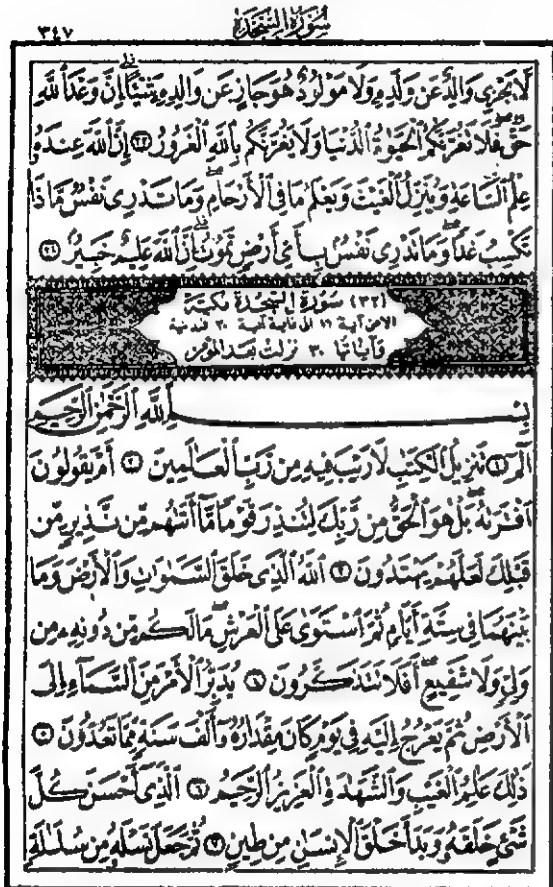 ٣٤٧
سُورَةُ السَّجْدَةِ
لَّا يَجْزِي وَالِدٌ عَن وَلَدِهِ وَلَا مَوْلُودٌ هُوَ جَازٍ عَن وَالِدِهِ شَيْـًٔا إِنَّ وَعْدَ ٱللَّهِ
حَقٌّ فَلَا تَغُرَّنَّكُمُ ٱلْحَيَوٰةُ ٱلدُّنْيَا وَلَا يَغُرَّنَّكُم بِٱللَّهِ ٱلْغَرُورُ ۝٣٣ إِنَّ ٱللَّهَ عِندَهُۥ
عِلْمُ ٱلسَّاعَةِ وَيُنَزِّلُ ٱلْغَيْثَ وَيَعْلَمُ مَا فِي ٱلْأَرْحَامِ وَمَا تَدْرِى نَفْسٌ مَّاذَا
تَكْسِبُ غَدًا وَمَا تَدْرِى نَفْسٌۢ بِأَىِّ أَرْضٍ تَمُوتُ إِنَّ ٱللَّهَ عَلِيمٌ خَبِيرٌۢ ۝٣٤
(٣٢) سُورَةُ السَّجْدَةِ مَكِّيَّة
الا من آية ١٦ الى غاية آية ٢٠ فمدنية
وَآيَاتُهَا ٣٠ نَزَلَتْ بَعْدَ المُؤْمِنُون
بِسْمِ ٱللَّهِ ٱلرَّحْمَٰنِ ٱلرَّحِيمِ
الٓمٓ ۝١ تَنزِيلُ ٱلْكِتَٰبِ لَا رَيْبَ فِيهِ مِن رَّبِّ ٱلْعَالَمِينَ ۝٢ أَمْ يَقُولُونَ
ٱفْتَرَىٰهُ بَلْ هُوَ ٱلْحَقُّ مِن رَّبِّكَ لِتُنذِرَ قَوْمًا مَّآ أَتَىٰهُم مِّن نَّذِيرٍ مِّن
قَبْلِكَ لَعَلَّهُمْ يَهْتَدُونَ ۝٣ ٱللَّهُ ٱلَّذِى خَلَقَ ٱلسَّمَٰوَٰتِ وَٱلْأَرْضَ وَمَا
بَيْنَهُمَا فِى سِتَّةِ أَيَّامٍ ثُمَّ ٱسْتَوَىٰ عَلَى ٱلْعَرْشِ مَا لَكُم مِّن دُونِهِۦ مِن
وَلِىٍّ وَلَا شَفِيعٍ أَفَلَا تَتَذَكَّرُونَ ۝٤ يُدَبِّرُ ٱلْأَمْرَ مِنَ ٱلسَّمَآءِ إِلَى
ٱلْأَرْضِ ثُمَّ يَعْرُجُ إِلَيْهِ فِى يَوْمٍ كَانَ مِقْدَارُهُۥٓ أَلْفَ سَنَةٍ مِّمَّا تَعُدُّونَ ۝٥
ذَٰلِكَ عَٰلِمُ ٱلْغَيْبِ وَٱلشَّهَٰدَةِ ٱلْعَزِيزُ ٱلرَّحِيمُ ۝٦ ٱلَّذِىٓ أَحْسَنَ كُلَّ
شَىْءٍ خَلَقَهُۥ وَبَدَأَ خَلْقَ ٱلْإِنسَٰنِ مِن طِينٍ ۝٧ ثُمَّ جَعَلَ نَسْلَهُۥ مِن سُلَٰلَةٍ